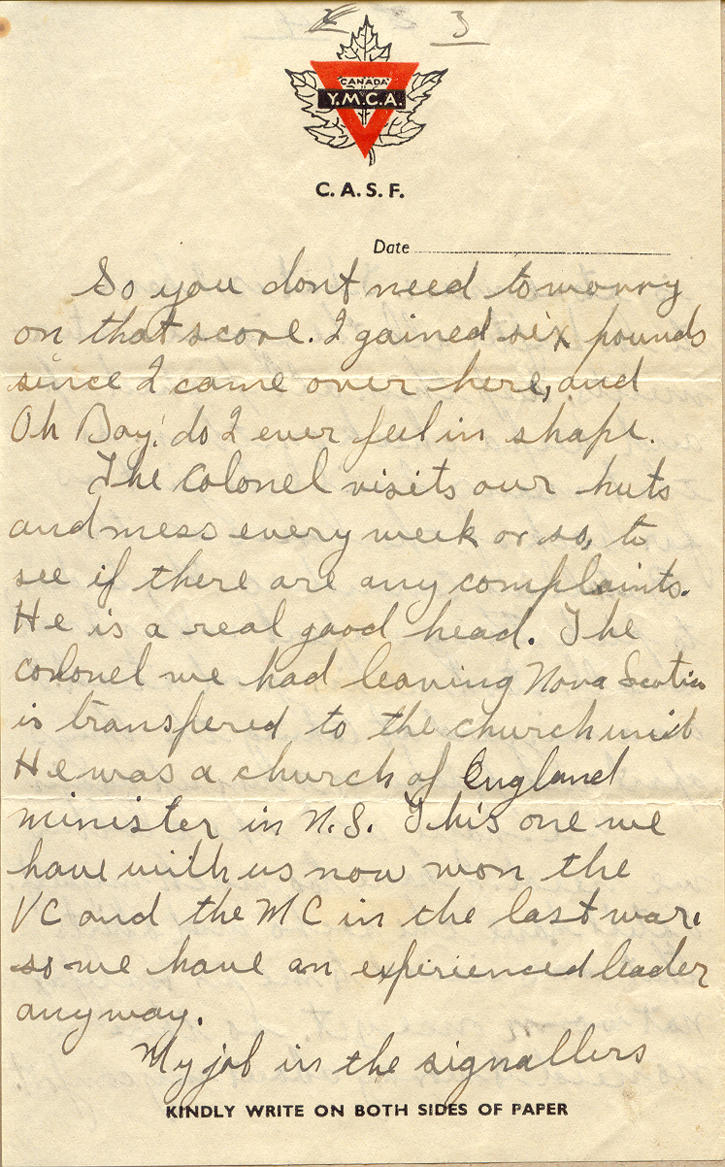 3
CANADA
Y.M.C.A.
C. A. S. F.
Date
So you dont need to worry
on that score. I gained six pounds
since I came over here, and
Oh Boy! do I ever feel in shape.
The colonel visits our huts
and mess every week or so, to
see if there are any complaints.
He is a real good head. The
colonel we had leaving Nova Scotia
is transfered to the church unit
He was a church of England
minister in N.S. This one we
have with us now won the
VC and the MC in the last war,
so we have an experienced leader
anyway.
My job in the signallers
KINDLY WRITE ON BOTH SIDES OF PAPER